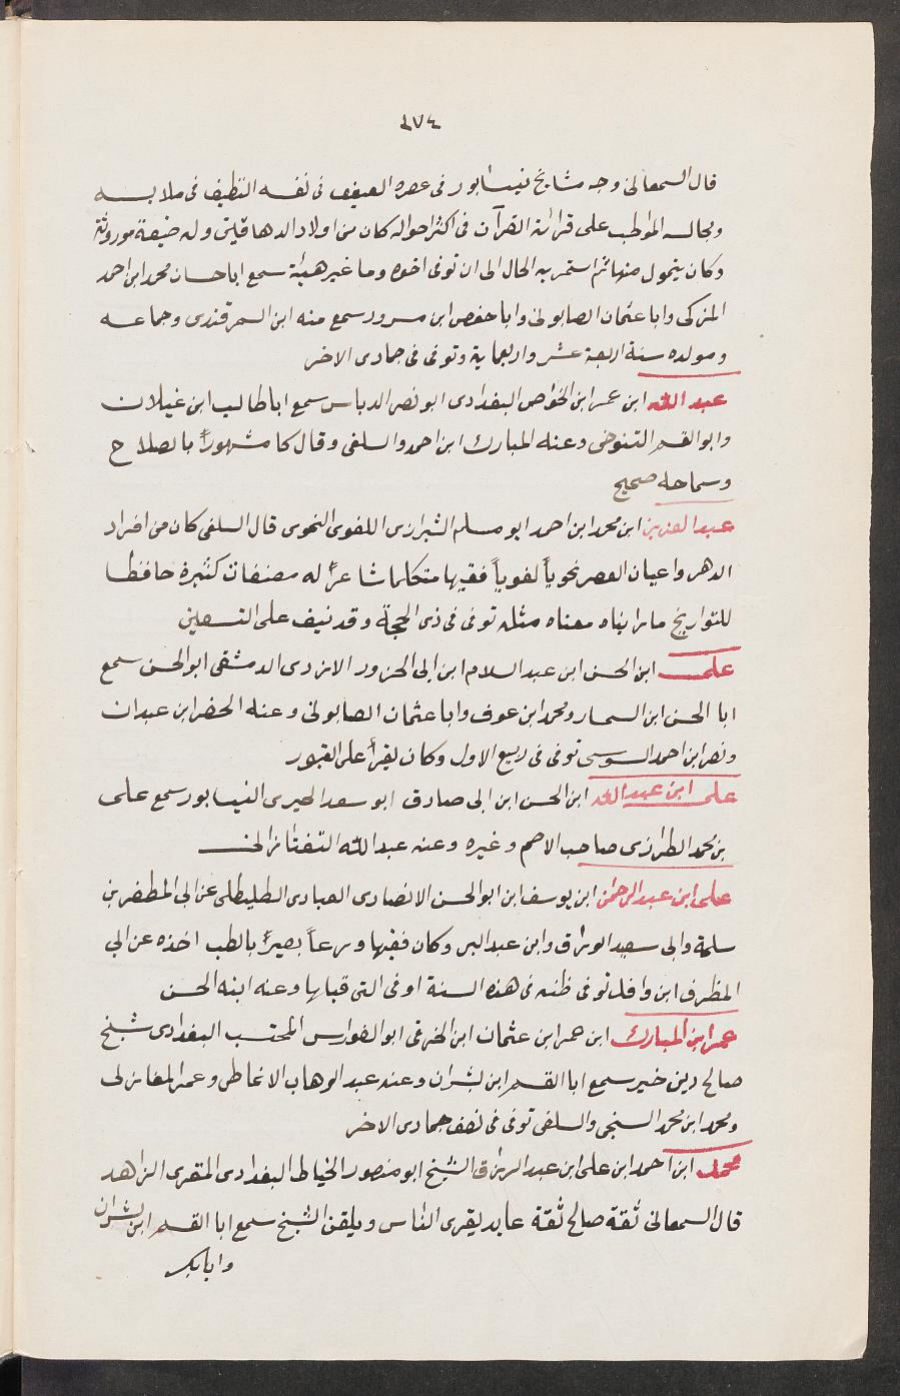 ٦٧٤
قال السمعانى وجه مشايخ نيسابور فى عصره العفيف فى نفسه النظيف فى ملابسه
ومجالسه المواظب على قرائة القرآن فى اكثر احواله كان من اولاد الدهاقين وله ضيعة موروثة
وكان يتمول منها ثم استمر به الحال الى ان توفى اخوه وما غير هيئة سمع اباحسان محمد ابن احمد
المزكى وابا عثمان الصابونى وابا حفص ابن مسرور سمع منه ابن السمرقندى وجماعه
ومولده سنة اربعة عشر واربعماية وتوفى فى جمادى الاخر
عبد الله ابن عمر ابن الخواص البغدادى ابو نصر الدباس سمع اباطالب ابن غيلان
وابو القسم التنوخى وعنه المبارك ابن احمد والسلفى وقال كا مشهوراً بالصلاح
وسماحه صحيح
عبد العزيز ابن محمد ابن احمد ابو مسلم الشيرازى اللغوى النحوى قال السلفى كان من افراد
الدهر واعيان العصر نحوياً لغوياً فقيها متكلما شاعراً له مصنفات كثيرة حافظا
للتواريخ ما راينا ه معناه مثله توفى فى ذى الحجة وقد نيف على التسعين
على ابن الحسن ابن عبد السلام ابن ابى الحزور الازدى الدمشقى ابو الحسن سمع
ابا الحسن ابن السمسار ومحمد ابن عوف وابا عثمان الصابونى وعنه الخضر ابن عبدان
ونصر ابن احمد السوسى توفى فى ربيع الاول وكان يقرأ على القبور
على ابن عبد الله ابن الحسن ابن ابى صادق ابو سعد الحيرى النيسابور سمع على
بن محمد الطرازى صاحب الاصم وغيره وعنه عبد الله التفتازانى
على ابن عبد الرحمن ابن يوسف ابن ابو الحسن الانصارى العبادى الطليطلى عن ابى المطفر بن
سلمة وابى سعيد الوراق وابن عبد البر وكان فقيها ورعاً بصيراً بالطب اخذه عن ابى
المطرف ابن وافل توفى ظنه فى هذه السنة او فى التى قبلها وعنه ابنه الحسن
عمر ابن المبارك ابن عمر ابن عثمان ابن الخرقى ابو الفوارس المحتسب البغدادى شيخ
صالح دين خير سمع ابا القسم ابن بشران وعنه عبد الوهاب الانماطى وعمر المغازلى
ومحمد ابن محمد السنجى والسلفى توفى فى نصف جمادى الاخر
محمد ابن احمد ابن على ابن عبد الرزاق الشيخ ابو منصور الخياط البغدادى المقرى الزاهد
قال السمعانى ثقة صالح ثقة عابد يقرى الناس ويلقن الشيخ سمع ابا القسم ابن بشران
وابابكر